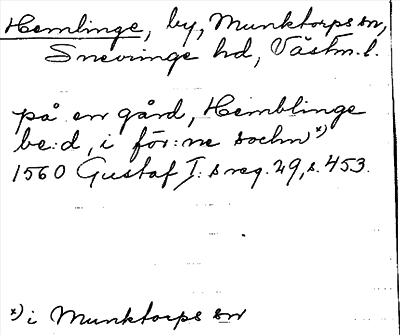 Hemlinge, by, Munktorps sn,
Snevringe hd, Västm.l.
på en gård, Hemblinge
be:d, i för:ne sochn x)
1560 Gustaf I:s reg. 29, s. 453.
x) i Munktorps sn